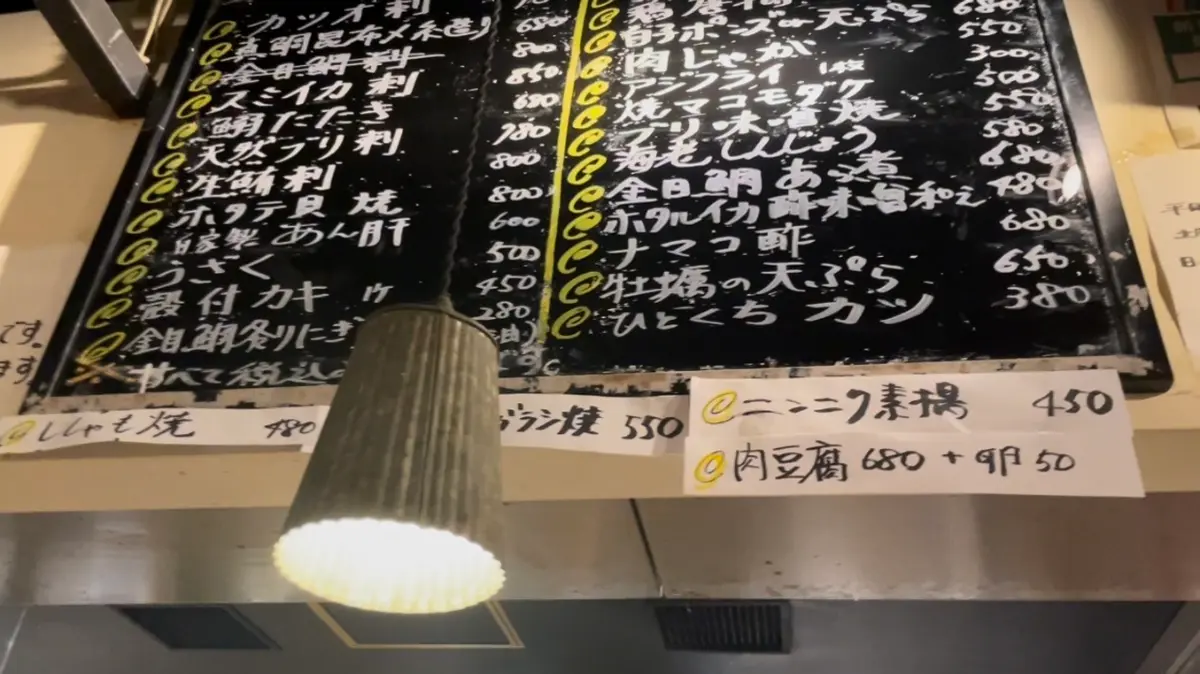 カツオ刺
真鯛昆布〆 680
金目鯛刺 800
スミイカ刺 850
鯛たたき 680
天然ブリ刺 780
生鯖刺 800
ホタテ貝焼 800
自家製あん肝 600
うざく 500
殻付カキ 1ケ 450
金目鯛炙りにぎ 280
※すべて税込
680
白子ポンズor天ぷら 550
肉じゃが 300
アジフライ 1枚 500
焼マコモダケ 550
ブリ味噌焼 580
海老しんじょう 680
金目鯛あら煮 480
ホタルイカ酢味噌和え 680
ナマコ酢 650
牡蠣の天ぷら 380
ひとくちカツ
ししゃも焼 480
ガラシ焼 550
ニンニク素揚 450
肉豆腐 680 + 卵 50
です。
ます。
平日
土
日